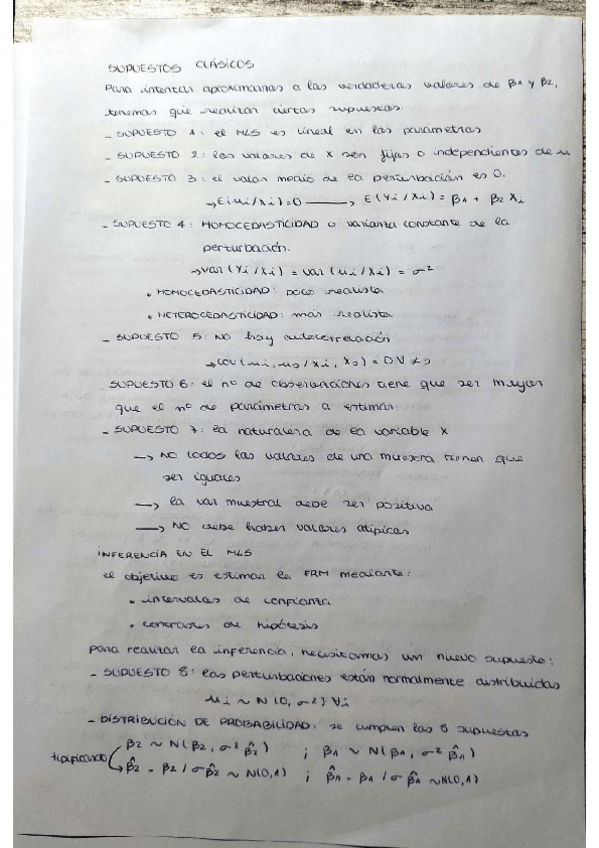 SUPUESTOS CLÁSICOS
Para intentar aproximarnos a los verdaderos valores de β1 y β2,
tenemos que realizar ciertos supuestos.
- SUPUESTO 1: el MLS es lineal en los parámetros
- SUPUESTO 2: los valores de X son fijos o independientes de u
- SUPUESTO 3: el valor medio de la perturbación es 0.
→ E(ui/Xi)=0 → E(Yi/Xi) = β1 + β2 Xi
- SUPUESTO 4: HOMOCEDASTICIDAD o varianza constante de la
perturbación.
→ var(Yi/Xi) = var(ui/Xi) = σ²
• HOMOCEDASTICIDAD: poco realista
• HETEROCEDASTICIDAD: más realista
- SUPUESTO 5: NO hay autocorrelación
→ cov(ui, uj/Xi, Xj) = 0 ∀ ≠ j
- SUPUESTO 6: el nº de observaciones tiene que ser mayor
que el nº de parámetros a estimar.
- SUPUESTO 7: la naturaleza de la variable X
→ NO todos los valores de una muestra tienen que
ser iguales
→ la var muestral debe ser positiva
→ NO debe haber valores atípicos
INFERENCIA EN EL MLS
el objetivo es estimar la FRM mediante:
• intervalos de confianza
• contrastes de hipótesis
para realizar la inferencia, necesitamos un nuevo supuesto:
- SUPUESTO 8: las perturbaciones están normalmente distribuidas
ui ~ N(0, σ²) ∀i
- DISTRIBUCIÓN DE PROBABILIDAD: se cumplen los 8 supuestos
β2 ~ N(β2, σ² β̂2) ; β1 ~ N(β1, σ² β̂1)
tipificando β̂2 - β2 / σ β̂2 ~ N(0,1) ; β̂1 - β1 / σ β̂1 ~ N(0,1)